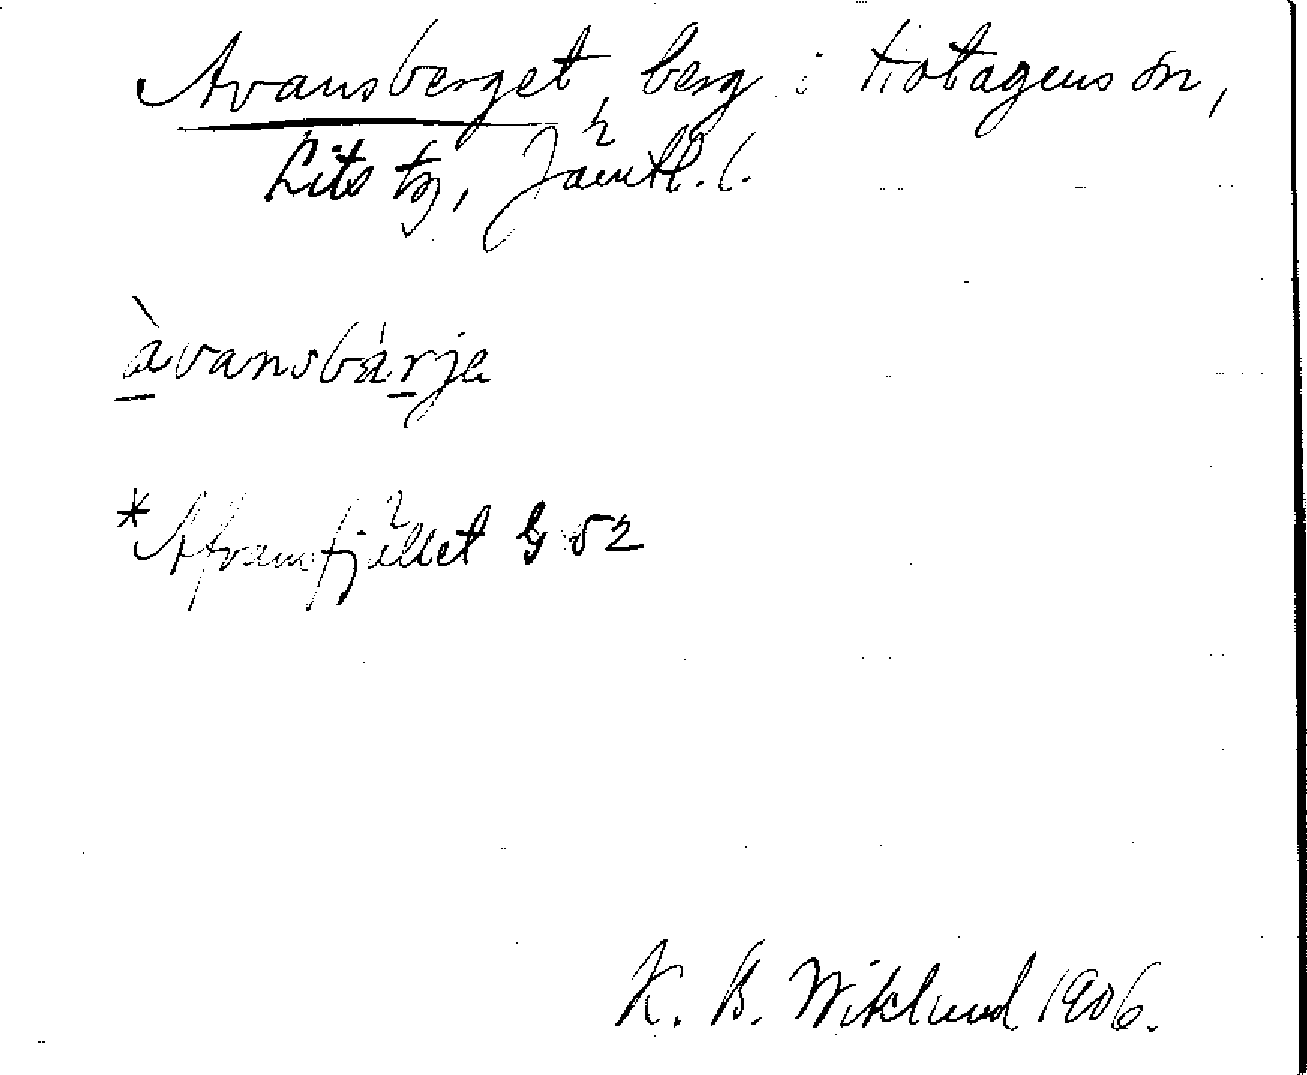 Avansberget, berg i Hotagens sn,
Lits tg, Jämtl. l.
àvansbárja
*Afvansfjället G 52
K. B. Wiklund 1906.